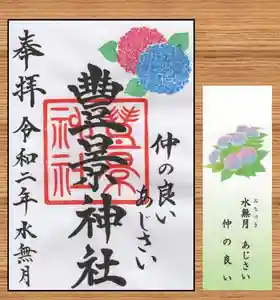 奉拝
令和二年水無月
豊景神社
仲の良い
あじさい
水無月 あじさい
みなづき
仲の良い